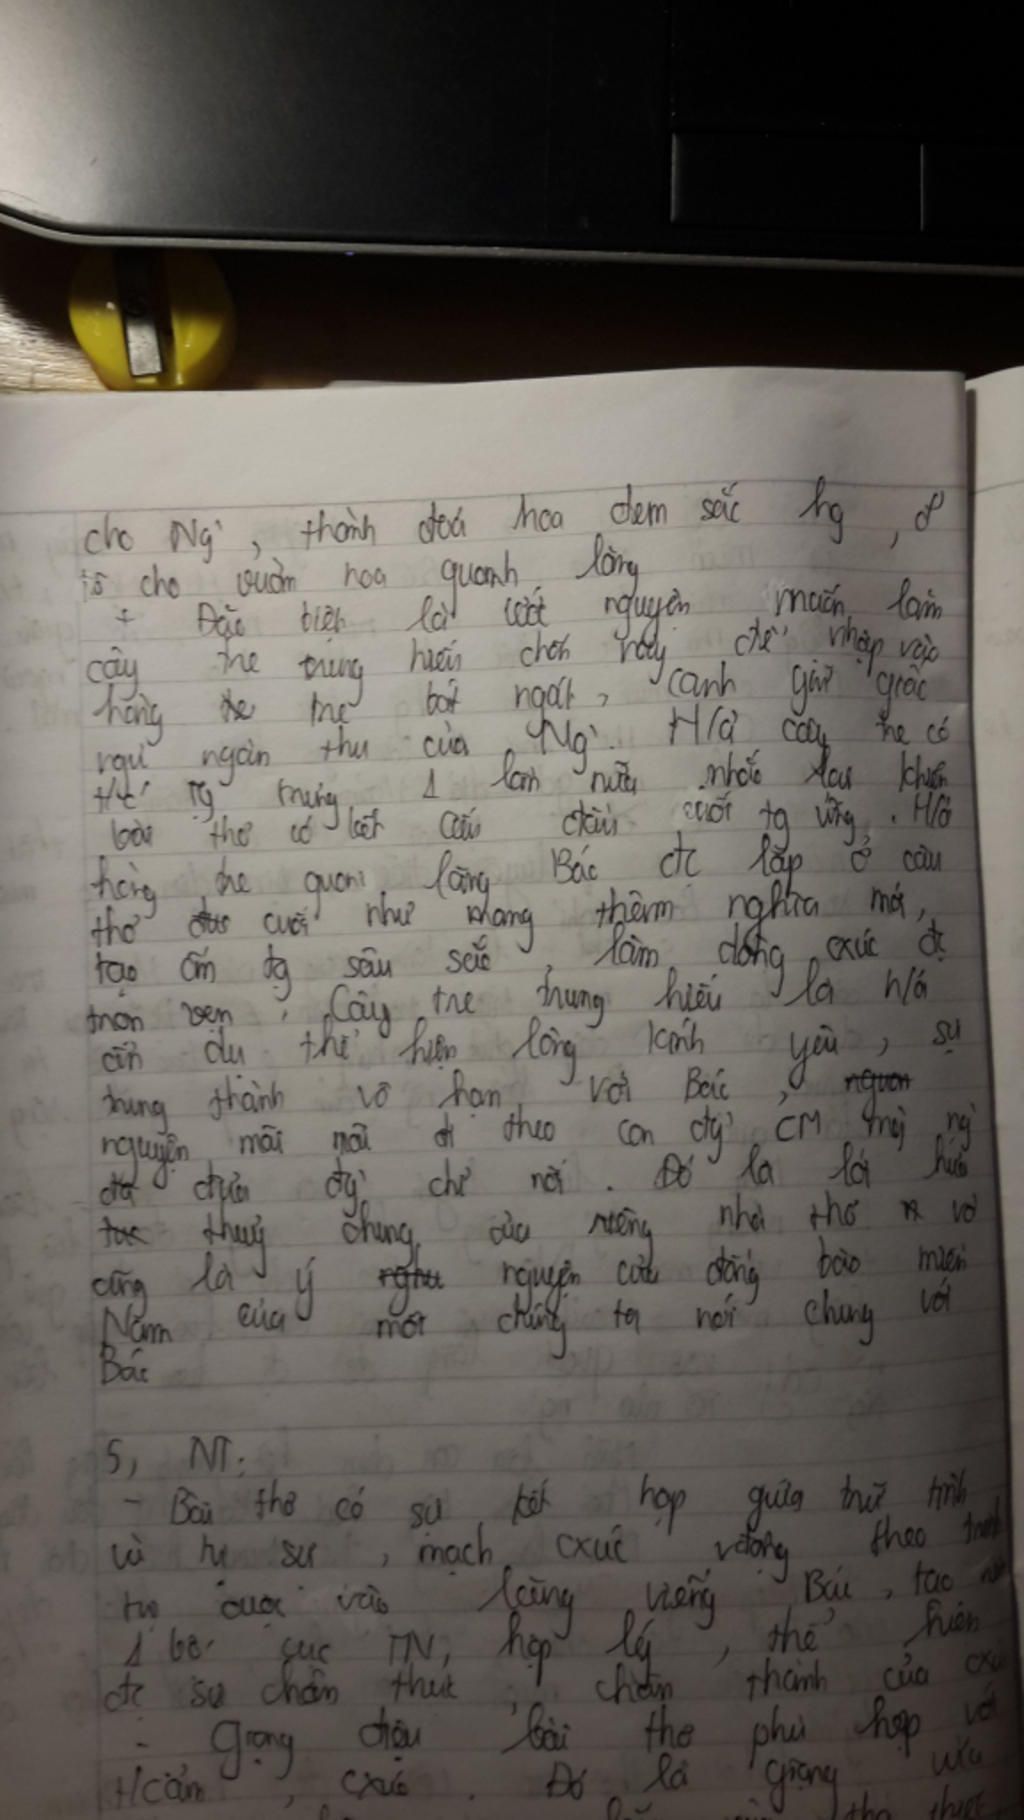 cho Ng', thành đoá hoa đem sắc hg, đ
tô cho vườn hoa quanh lăng
+ Đặc biệt là ước nguyện muốn làm
cây tre trung hiếu chốn này để nhập vào
hàng tre bát ngát, canh giữ giấc
ngủ ngàn thu của Ng'. H/ả cây tre có
t/c' tg trưng 1 lần nữa nhắc lại khiến
bài thơ có kết cấu đầu cuối tg ứng. H/ả
hàng tre quanh lăng Bác đc lặp ở câu
thơ cuối như mang thêm nghĩa mới,
tạo ấn tg sâu sắc, làm dòng cxúc đc
trọn vẹn. Cây tre trung hiếu là h/ả
ẩn dụ thể hiện lòng kính yêu, sự
trung thành vô hạn với Bác,
nguyện mãi mãi đi theo con đg' CM mà ng'
đưa đg' chỉ nối. Đó là lời hứa
thuỷ chung của riêng nhà thơ và
cũng là ý nguyện của đồng bào miền
Nam của mỗi chúng ta nói chung với
Bác
5, NT:
- Bài thơ có sự kết hợp giữa trữ tình
và tự sự, mạch cxúc vđộng theo trình
tự cuộc vào lăng viếng Bác, tạo nên
1 bố cục TN, hợp lý, thể hiện
đc sự chân thực, chân thành của cxúc
- Giọng điệu bài thơ phù hợp với
t/cảm, cxúc. Đó là giọng vừa